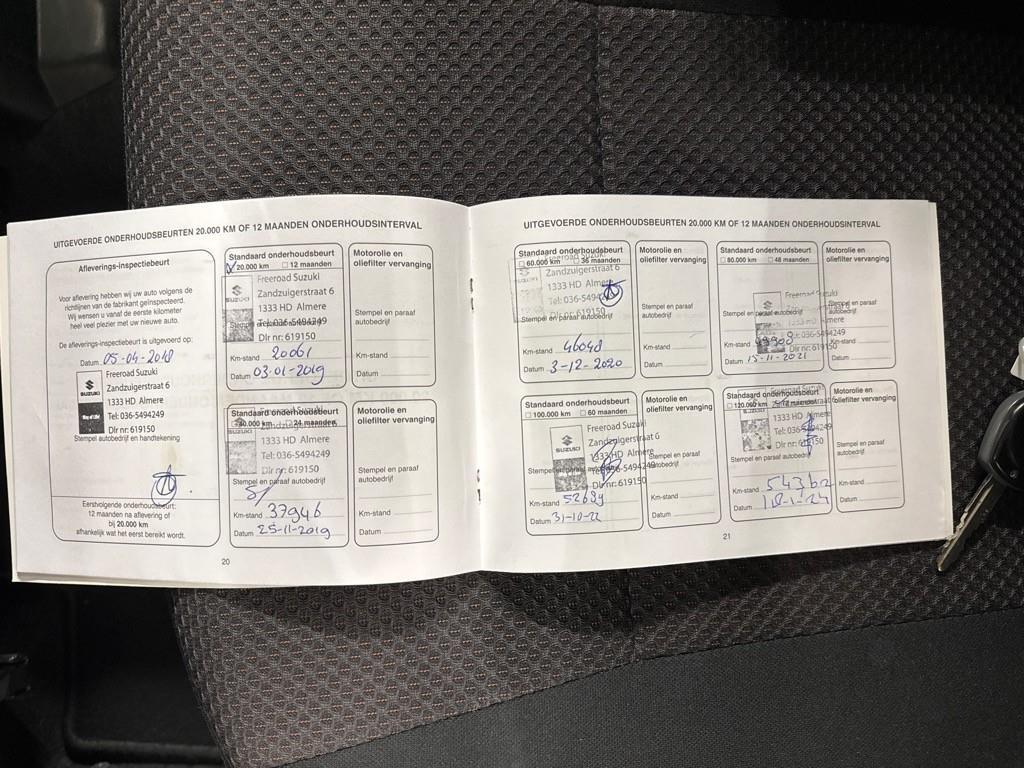 UITGEVOERDE ONDERHOUDSBEURTEN 20.000 KM OF 12 MAANDEN ONDERHOUDSINTERVAL
Afleverings-inspectiebeurt
Voor aflevering hebben wij uw auto volgens de
richtlijnen van de fabrikant geïnspecteerd.
Wij wensen u vanaf de eerste kilometer
heel veel plezier met uw nieuwe auto.
De afleverings-inspectiebeurt is uitgevoerd op:
Datum 05-04-2018
SUZUKI
Freeroad Suzuki
Zandzuigerstraat 6
1333 HD Almere
Tel: 036-5494249
Dlr nr: 619150
Stempel autobedrijf en handtekening
Eerstvolgende onderhoudsbeurt:
12 maanden na aflevering of
bij 20.000 km
afhankelijk wat het eerst bereikt wordt.
Standaard onderhoudsbeurt
20.000 km 12 maanden
SUZUKI
Freeroad Suzuki
Zandzuigerstraat 6
1333 HD Almere
Tel: 036-5494249
Dlr nr: 619150
Km-stand 20061
Datum 03-01-2019
Motorolie en
oliefilter vervanging
Stempel en paraaf
autobedrijf
Km-stand
Datum
Standaard onderhoudsbeurt
24 maanden
Freeroad Suzuki
Zandzuigerstraat 6
1333 HD Almere
Tel: 036-5494249
Dlr nr: 619150
Stempel en paraaf autobedrijf
Km-stand 37946
Datum 25-11-2019
Motorolie en
oliefilter vervanging
Stempel en paraaf
autobedrijf
Km-stand
Datum
20
UITGEVOERDE ONDERHOUDSBEURTEN 20.000 KM OF 12 MAANDEN ONDERHOUDSINTERVAL
Standaard onderhoudsbeurt
60.000 km 36 maanden
Freeroad Suzuki
Zandzuigerstraat 6
1333 HD Almere
Tel: 036-5494249
Dlr nr: 619150
Stempel en paraaf autobedrijf
Km-stand 46048
Datum 3-12-2020
Motorolie en
oliefilter vervanging
Stempel en paraaf
autobedrijf
Km-stand
Datum
Standaard onderhoudsbeurt
80.000 km 48 maanden
Freeroad Suzuki
1333 HD Almere
Tel: 036-5494249
Dlr nr: 619150
Km-stand
Datum 15-11-2021
Motorolie en
oliefilter vervanging
Stempel en paraaf
autobedrijf
Km-stand
Datum
Standaard onderhoudsbeurt
100.000 km 60 maanden
SUZUKI
Freeroad Suzuki
Zandzuigerstraat 6
1333 HD Almere
Tel: 036-5494249
Dlr nr: 619150
Km-stand
Datum 31-10-22
Motorolie en
oliefilter vervanging
Stempel en paraaf
autobedrijf
Km-stand
Datum
Standaard onderhoudsbeurt
120.000 km
1333 HD Almere
Tel: 036-5494249
Dlr nr: 619150
Stempel en paraaf autobedrijf
Km-stand
Datum
Motorolie en
oliefilter vervanging
Stempel en paraaf
autobedrijf
Km-stand
Datum
21